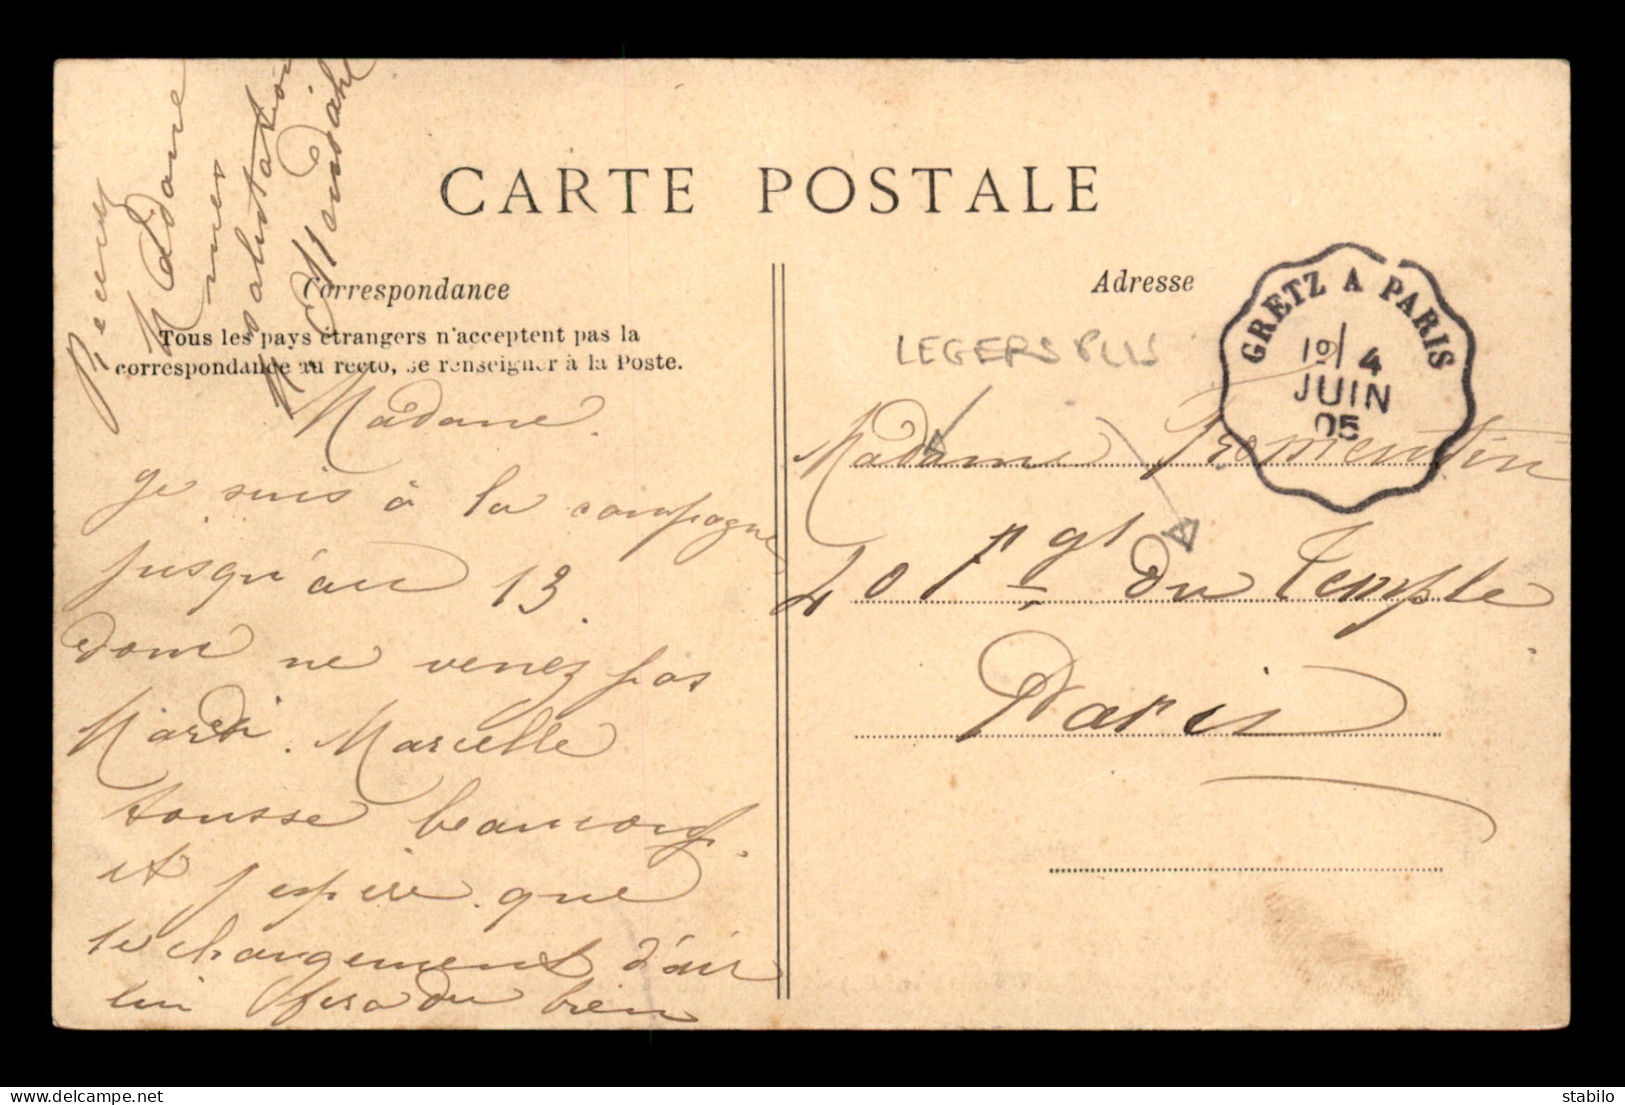 CARTE POSTALE
Correspondance
Tous les pays étrangers n'acceptent pas la
correspondance au recto, se renseigner à la Poste.
Madame
je suis à la campagne
jusqu'au 13
donc ne venez pas
Mardi. Marcelle
tousse beaucoup.
et j'espère que
le changement d'air
lui fera du bien
Recevez
Madame
mes
salutations
Adresse
LEGERS PLIS
GRETZ A PARIS
4
JUIN
05
Madame Fromentin
201 Fg du Temple
Paris
delcampe.net
stabilo